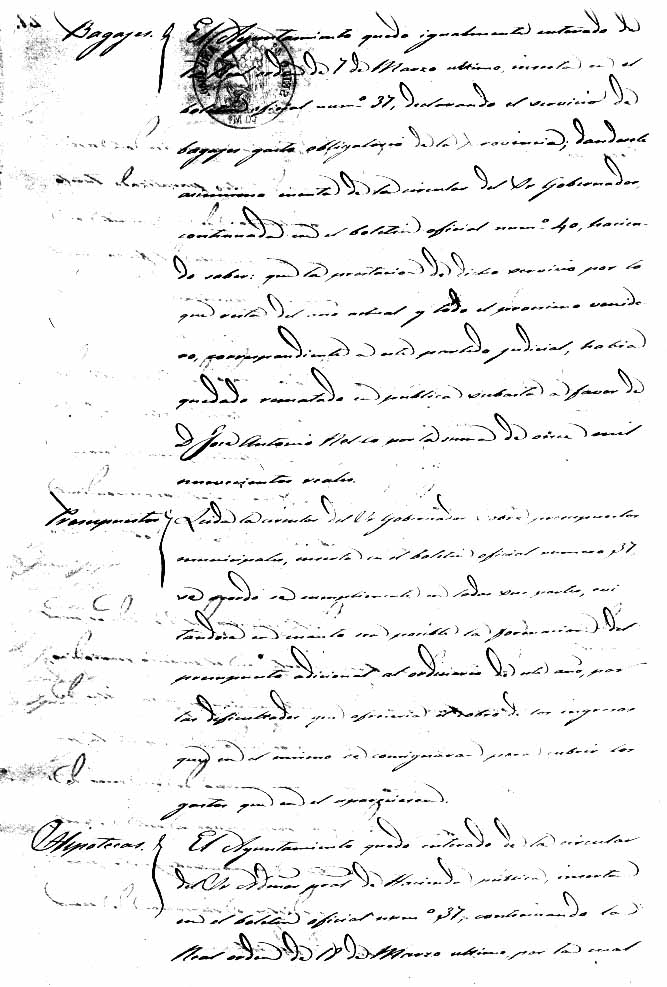 Bagajes. El Ayuntamiento quedo igualmente enterado de
la Real orden de 7 de Marzo ultimo, inserta en el
boletin oficial num.º 37, declarando el servicio de
bagajes gasto obligatorio de la Provincia; dandosele
asimismo cuenta de la circular del Sr Gobernador,
continuada en el boletin oficial num.º 40, hacien-
do saber: que la prestacion de dicho servicio por lo
que resta del año actual y todo el proximo venide-
ro, correspondiente a este partido judicial, habia
quedado rematado en publica subasta a favor de
D. José Antonio por la suma de once mil
novecientos reales.
Presupuestos Leida la circular del Sr Gobernador sobre presupuestos
municipales, inserta en el boletin oficial numero 37,
se acordo se cumplimente en todas sus partes, evi
tandose en cuanto sea posible la formacion del
presupuesto adicional al ordinario de este año, por
las dificultades que ofreceria el cobro de los ingresos
que en el mismo se consignaran para cubrir los
gastos que en el apareciesen.
Hipotecas. El Ayuntamiento quedo enterado de la circular
del Sr Admor pral de Hacienda publica, inserta
en el boletin oficial num.º 37, continuando la
Real orden de 18 de Marzo ultimo, por la cual